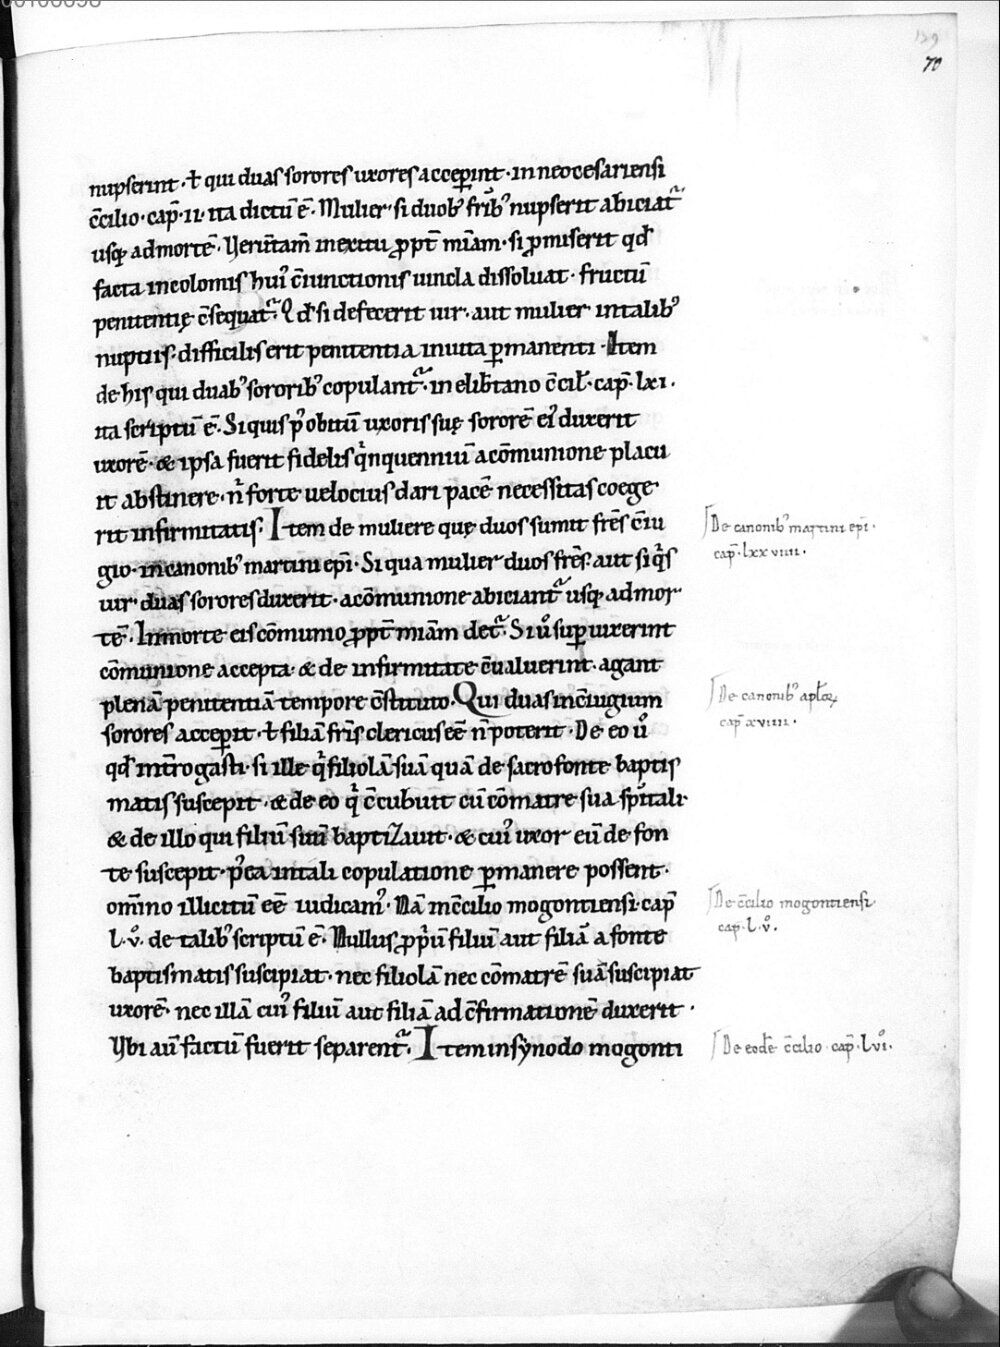 139
70
nupserint · ł qui duas sorores uxores acceꝑint · in neocesariensi
c̄cilio · cap̄ · ii · ita dictū ē · Mulier · si duob᷒ frīb᷒ nupserit abiciat᷑
usq; ad mortē · Uerūtam̄ in exitu ꝓpt̄ miām · si ꝓmiserit qđ
facta incolomis hui᷒ c̄iunctionis uincla dissoluat · fructū
penitentię c̄sequat᷑ · Qđ si defecerit uir · aut mulier in talib᷒
nuptiis · difficilis erit penitentia in uita ꝑmanenti · Item
de his qui duab᷒ sororib᷒ copulant᷑ · in elib̄tano c̄cil̄ · cap̄ · lxi ·
ita scriptū ē · Si quis p᷒ obitū uxoris suę sororē ei᷒ duxerit
uxorē · & ipsa fuerit fidelis qͥnquenniū a cōmunione placu
it abstinere · n̄ forte uelocius dari pacē necessitas coege
rit infirmitatis · Item de muliere quę duos sumit fr̄es c̄iu
gio · in canonib᷒ martini ep̄i · Si qua mulier duos fr̄es · aut si qͥs
uir duas sorores duxerit · a cōmunione abiciant᷑ usq; ad mor
tē · In morte eis cōmunio ꝓpt̄ miām det᷑ · Si ů suꝑuixerint
cōmunione accepta · & de infirmitate c̄ualuerint · agant
plenā penitentiā tempore c̄stituto · Qui duas in c̄iugium
sorores acceꝑit · ł filiā fr̄is clericus eē n̄ poterit · De eo ů
qđ int̄rogasti · si ille qͥ filiolā suā quā de sacro fonte baptis
matis suscepit · & de eo qͥ c̄cubuit cū cōmatre sua sp̄itali
& de illo qui filiū suū baptizauit · & cui᷒ uxor eū de fon
te suscepit · p᷒ea in tali copulatione ꝑmanere possent ·
om̄ino illicitū eē iudicam᷒ · Nā in c̄cilio mogontiensi · cap̄
l · v̊ · de talib᷒ scriptū ē · Nullus ꝓp̄ū filiū aut filiā a fonte
baptismatis suscipiat · nec filiolā nec cōmatrē suā suscipiat
uxorē · nec illā cui᷒ filiū aut filiā ad c̄firmationē duxerit ·
Ubi aū factū fuerit separent᷑ · Item in synodo mogonti
De canonib᷒ martini ep̄i ·
cap̄ · lxxviiii ·
De canonib᷒ apl̄oꝝ
cap̄ xviiii ·
De c̄cilio mogontiensi
cap̄ · l · v̊ ·
De eodē c̄cilio cap̄ · lvi ·